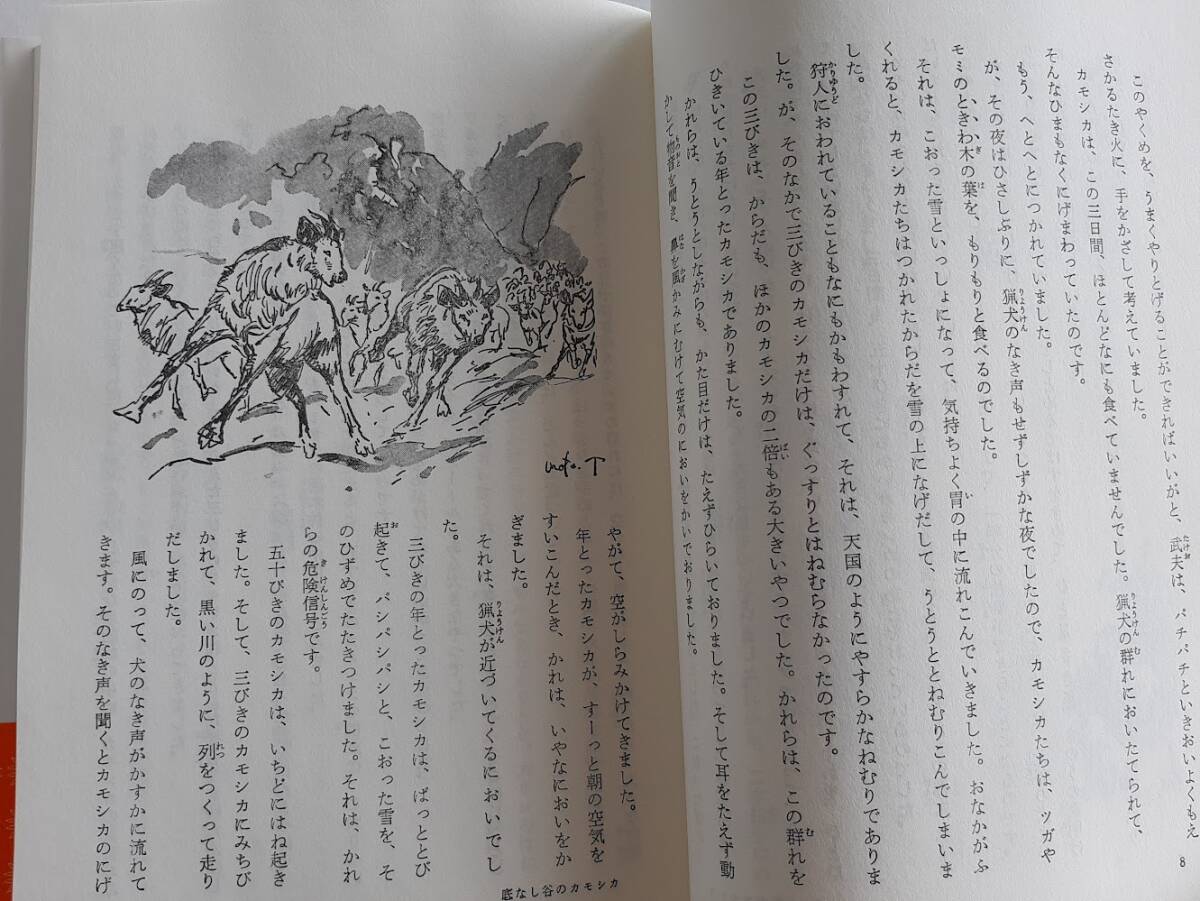 このやくめを、うまくやりとげることができればいいがと、武夫は、パチパチといきおいよくもえ
さかるたき火に、手をかざして考えていました。
カモシカは、この三日間、ほとんどなにも食べていませんでした。猟犬の群れにおいたてられて、
そんなひまもなくにげまわっていたのです。
もう、へとへとにつかれていました。
が、その夜はひさしぶりに、猟犬のなき声もせずしずかな夜でしたので、カモシカたちは、ツガや
モミのときわ木の葉を、もりもりと食べるのでした。
それは、こおった雪といっしょになって、気持ちよく胃の中に流れこんでいきました。おなかがふ
くれると、カモシカたちはつかれたからだを雪の上になげだして、うとうととねむりこんでしまいま
した。
狩人におわれていることもなにもかもわすれて、それは、天国のようにやすらかなねむりでありま
した。が、そのなかで三びきのカモシカだけは、ぐっすりとはねむらなかったのです。
この三びきは、からだも、ほかのカモシカの二倍もある大きいやつでした。かれらは、この群れを
ひきいている年とったカモシカでありました。
かれらは、うとうとしながらも、かた目だけは、たえずひらいておりました。そして耳をたえず動
かして物音を聞き、鼻を風かみにむけて空気のにおいをかいでおりました。
8
やがて、空がしらみかけてきました。
年とったカモシカが、すーっと朝の空気を
すいこんだとき、かれは、いやなにおいをか
ぎました。
それは、猟犬が近づいてくるにおいでし
た。
三びきの年とったカモシカは、ぱっととび
起きて、パシパシパシと、こおった雪を、そ
のひずめでたたきつけました。それは、かれ
らの危険信号です。
五十ぴきのカモシカは、いちどにはね起き
ました。そして、三びきのカモシカにみちび
かれて、黒い川のように、列をつくって走り
だしました。
風にのって、犬のなき声がかすかに流れて
きます。そのなき声を聞くとカモシカのにげ
底なし谷のカモシカ